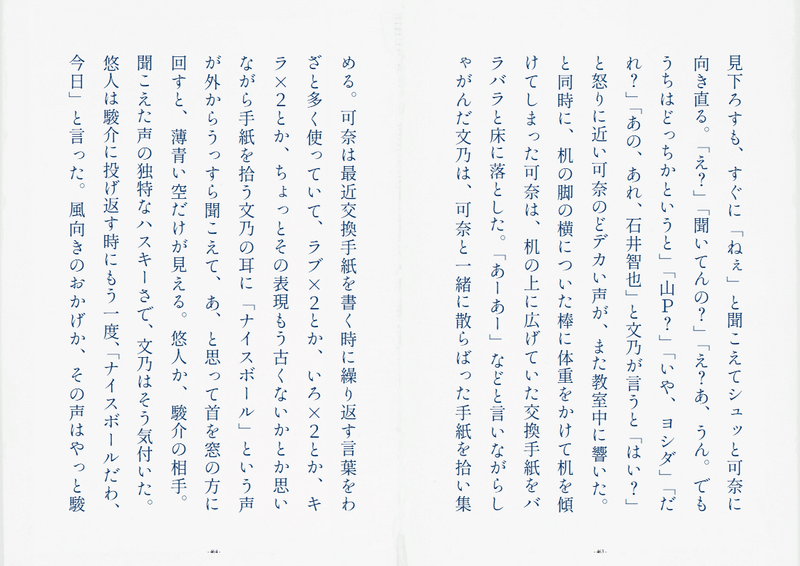 見下ろすも、すぐに「ねぇ」と聞こえてシュッと可奈に
向き直る。「え?」「聞いてんの?」「え?あ、うん。でも
うちはどっちかというと」「山P?」「いや、ヨシダ」「だ
れ?」「あの、あれ、石井智也」と文乃が言うと「はい?」
と怒りに近い可奈のどデカい声が、また教室中に響いた。
と同時に、机の脚の横についた棒に体重をかけて机を傾
けてしまった可奈は、机の上に広げていた交換手紙をバ
ラバラと床に落とした。「あーあー」などと言いながらし
ゃがんだ文乃は、可奈と一緒に散らばった手紙を拾い集
める。可奈は最近交換手紙を書く時に繰り返す言葉をわ
ざと多く使っていて、ラブ×2とか、いろ×2とか、キ
ラ×2とか、ちょっとその表現もう古くないかとか思い
ながら手紙を拾う文乃の耳に「ナイスボール」という声
が外からうっすら聞こえて、あ、と思って首を窓の方に
回すと、薄青い空だけが見える。悠人か、駿介の相手。
聞こえた声の独特なハスキーさで、文乃はそう気付いた。
悠人は駿介に投げ返す時にもう一度、「ナイスボールだわ、
今日」と言った。風向きのおかげか、その声はやっと駿